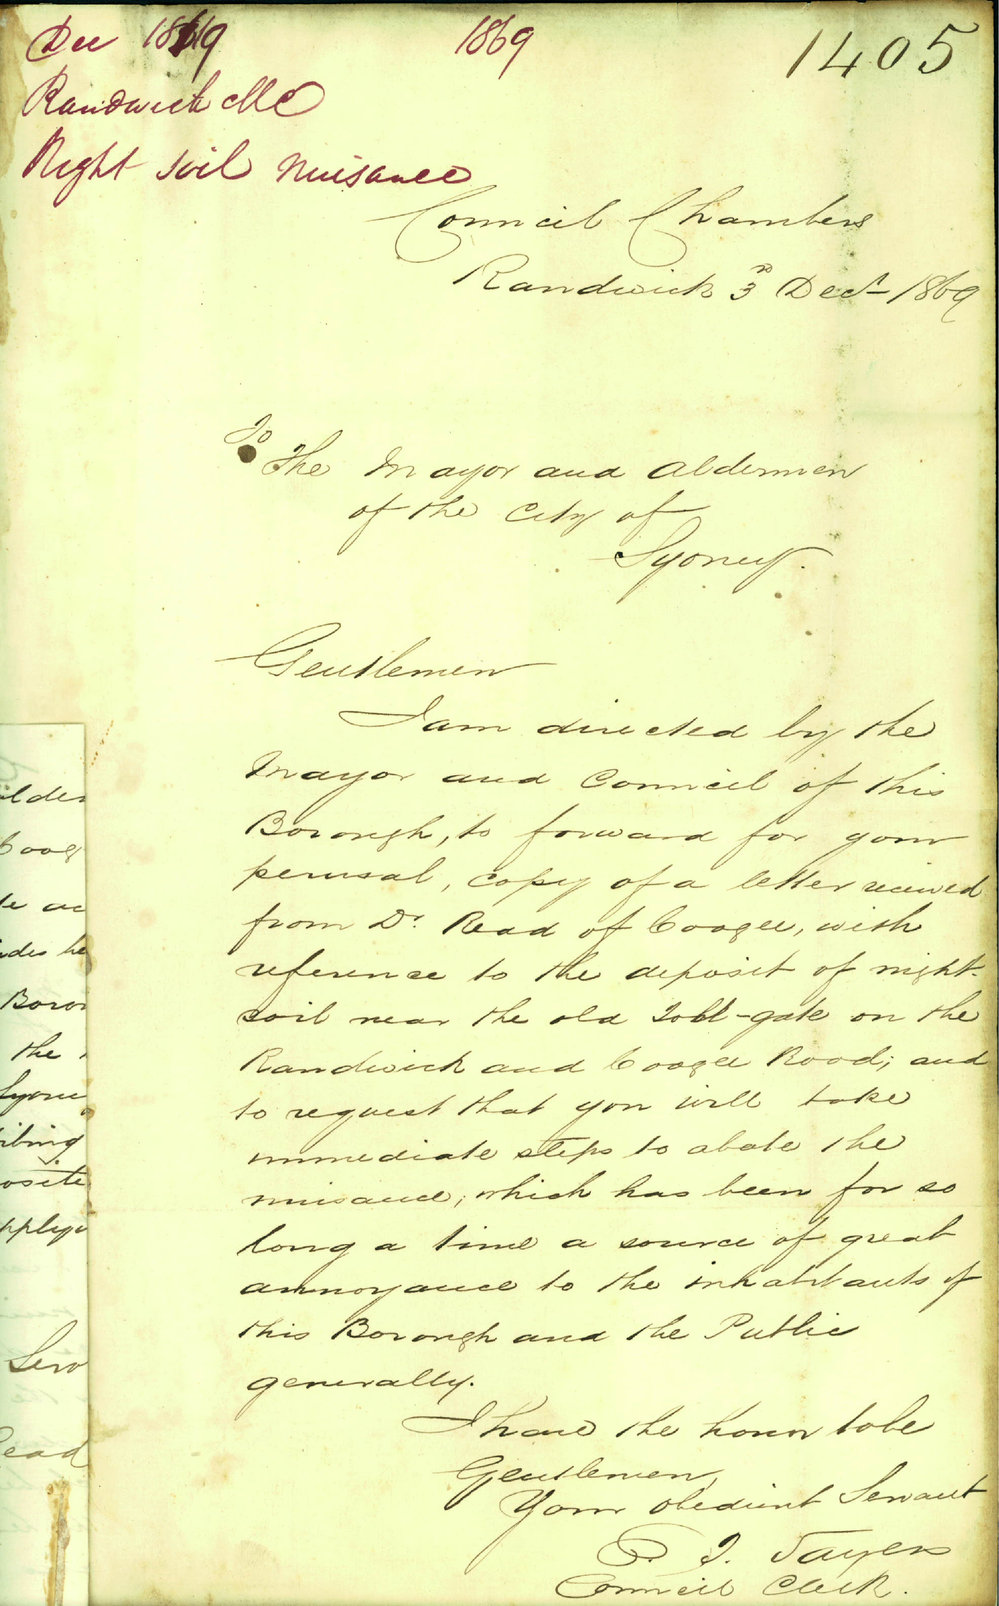 Dec 1869 1869 1405
Randwick MC
Night soil nuisance
Council Chambers
Randwick 3rd Decr 1869
To
The Mayor and Aldermen
of the City of
Sydney.
Gentlemen
I am directed by the
Mayor and Council of this
Borough, to forward for your
perusal, copy of a letter received
from Dr. Read of Coogee, with
reference to the deposit of night-
soil near the old Toll-gate on the
Randwick and Coogee Road; and
to request that you will take
immediate steps to abate the
nuisance, which has been for so
long a time a source of great
annoyance to the inhabitants of
this Borough and the Public
generally.
I have the honor to be
Gentlemen,
Your obedient Servant
Council Clerk.
alder
Coog
Boro
the
Sydney
osite
Serv
Read